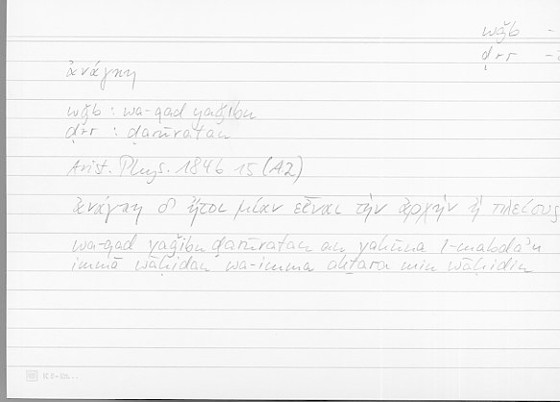 wǧb -
ḍrr -
ἀνάγκη
wǧb : wa-qad yaǧibu
ḍrr : ḍarūratan
Arist. Phys. 184b 15 (A2)
ἀνάγκη δ' ἤτοι μίαν εἶναι τὴν ἀρχὴν ἢ πλείους
wa-qad yaǧibu ḍarūratan an yakūna l-mabdaʾu
immā wāḥidan wa-imma akṯara min wāḥidin